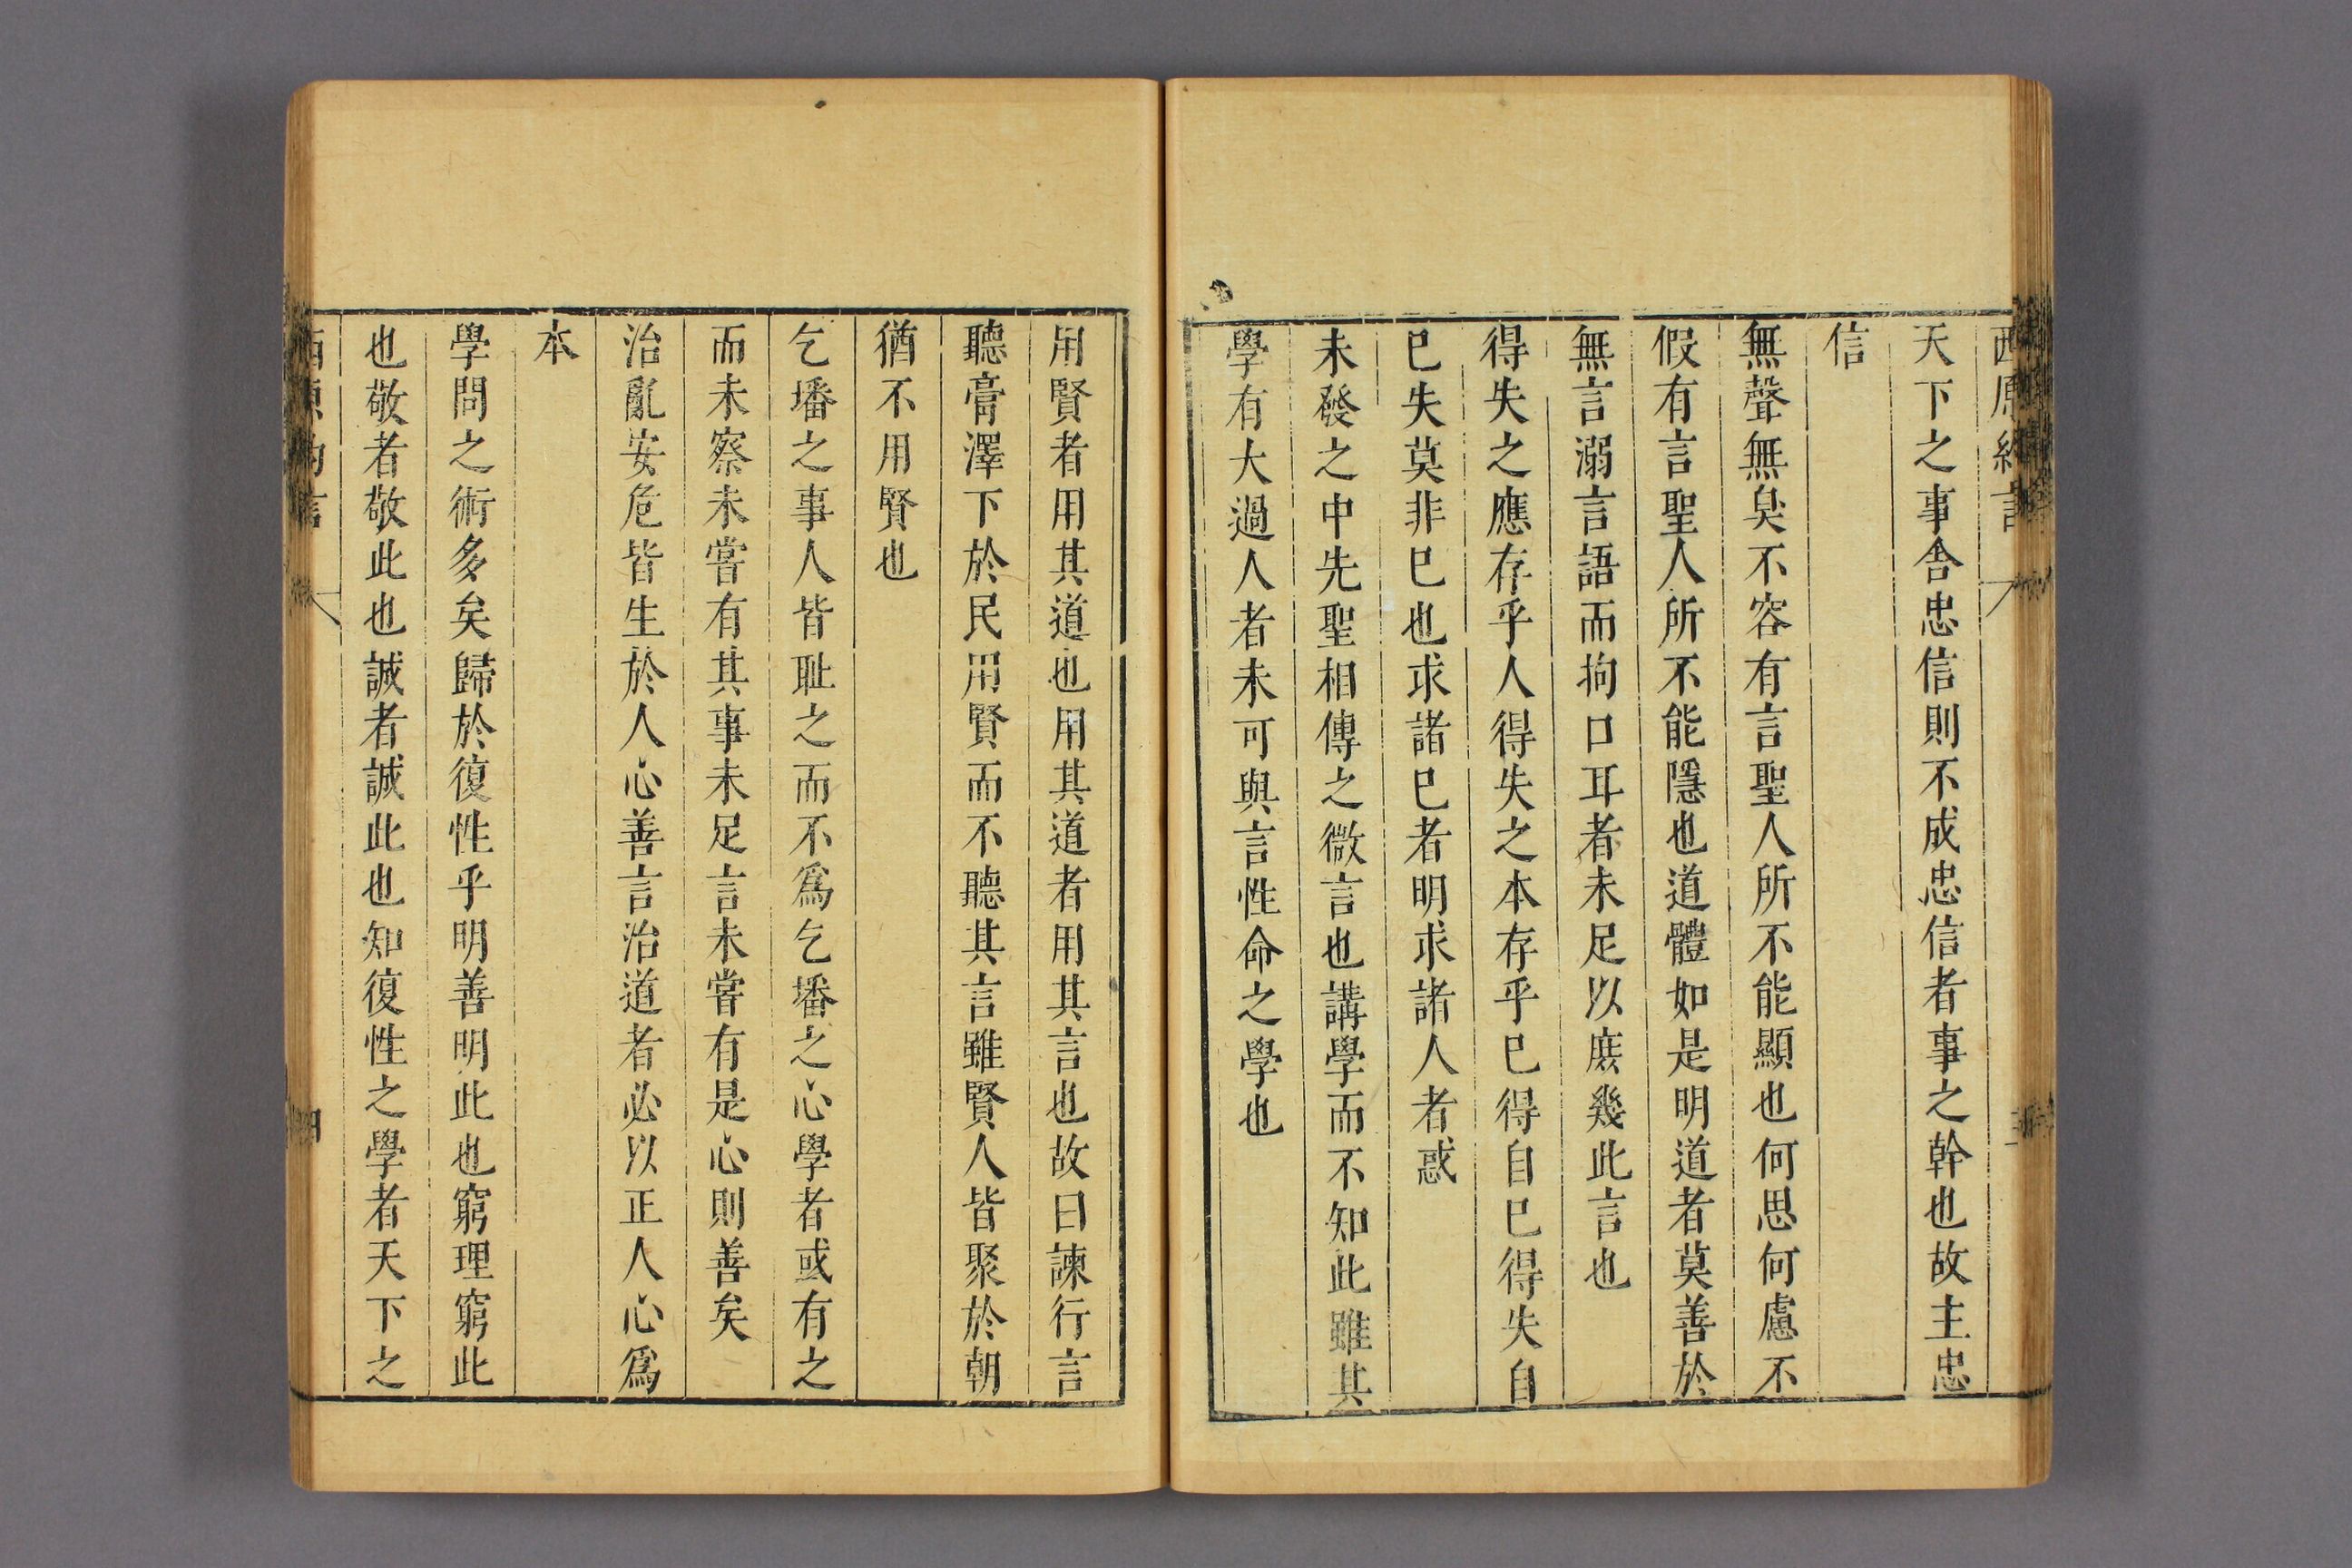 西原約言
天下之事舍忠信則不成忠信者事之幹也故主忠
信
無聲無臭不容有言聖人所不能顯也何思何慮不
假有言聖人所不能隱也道體如是明道者莫善於
無言溺言語而拘口耳者未足以庶幾此言也
得失之應存乎人得失之本存乎已得自已得失自
已失莫非已也求諸已者明求諸人者惑
未發之中先聖相傳之微言也講學而不知此雖其
學有大過人者未可與言性命之學也
用賢者用其道也用其道者用其言也故曰諫行言
聽膏澤下於民用賢而不聽其言雖賢人皆聚於朝
猶不用賢也
乞墦之事人皆耻之而不爲乞墦之心學者或有之
而未察未嘗有其事未足言未嘗有是心則善矣
治亂安危皆生於人心善言治道者必以正人心爲
本
學問之術多矣歸於復性乎明善明此也窮理窮此
也敬者敬此也誠者誠此也知復性之學者天下之
西原約言 四